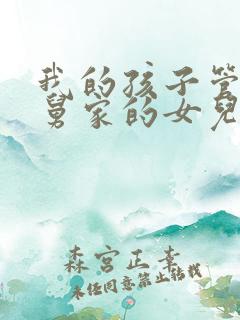 我的孩子管
舅家的女兒
森宮正幸
未经同意禁止转载